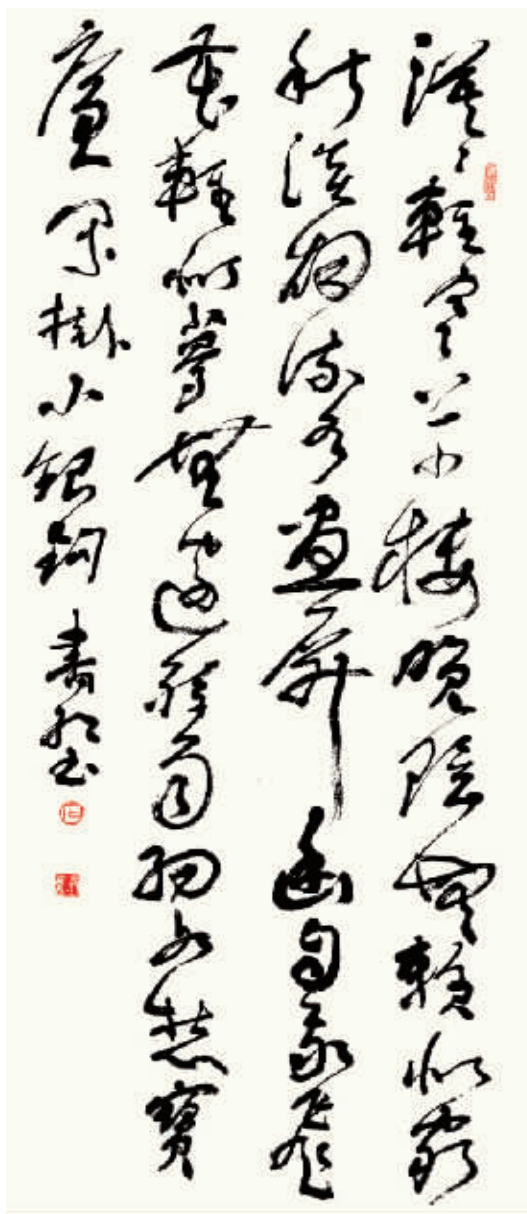 漠〻輕寒上小樓曉陰無賴似窮
秋淡烟流水畫屏幽自在飛
花輕似夢無邊絲雨細如愁寶
簾閑掛小銀鉤